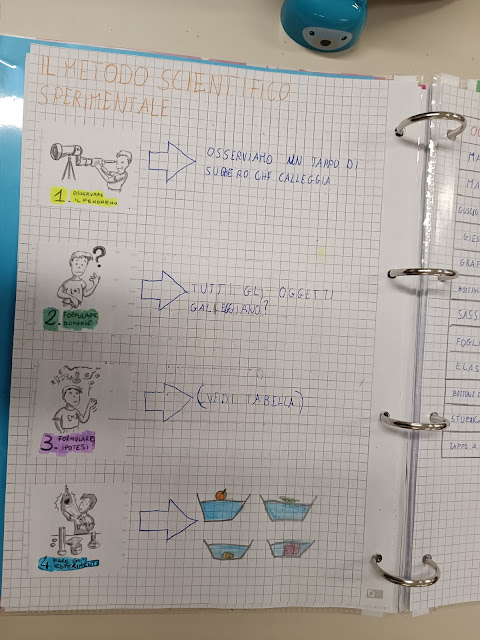 IL METODO SCIENTIFICO
SPERIMENTALE
OSSERVIAMO UN TAPPO DI
SUGHERO CHE CALLEGGIA
1. OSSERVARE
IL FENOMENO
?
TUTTI GLI OGGETTI
GALLEGGIANO?
2. FORMULARE
DOMANDE
(VEDI TABELLA)
3. FORMULARE
IPOTESI
4. FARE
ESPERIMENTI
MA
MA
GIES
GRAF
SASS
FOGLI
ELAS
BOTTONE
TAPPO